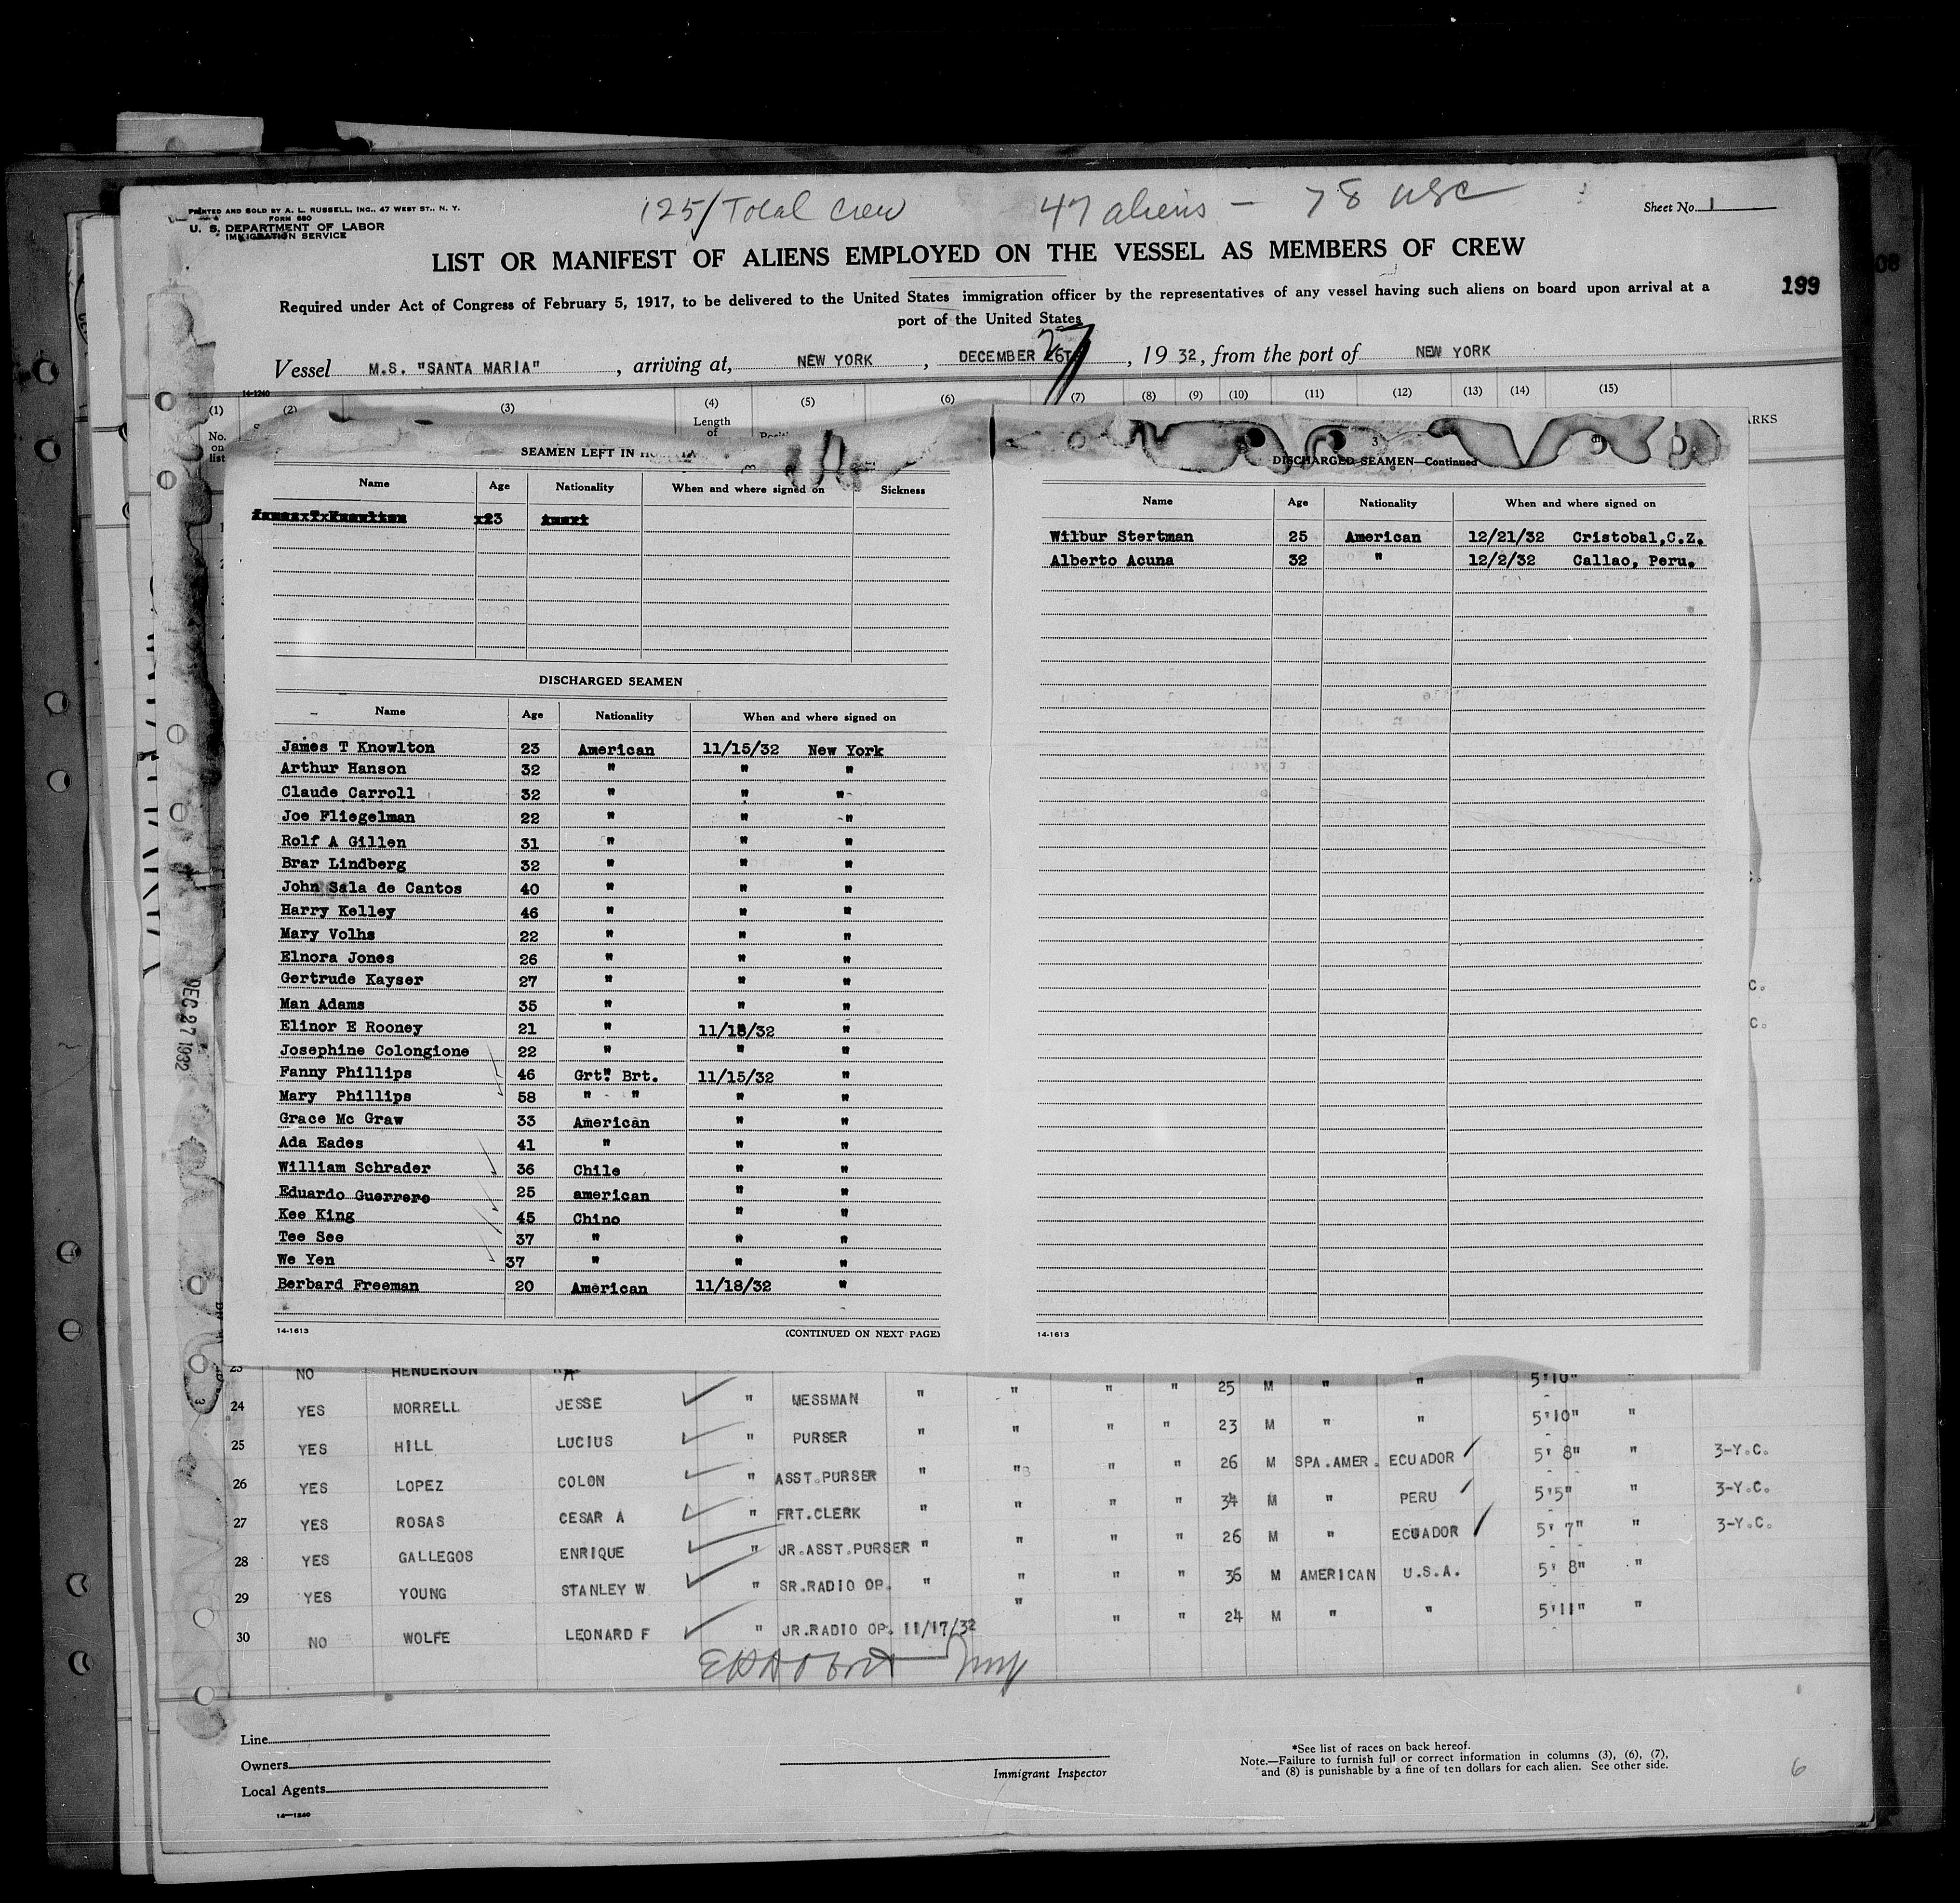 125/ Total Crew 47 aliens - 78 USC
PRINTED AND SOLD BY A. L. RUSSELL, INC., 47 WEST ST., N. Y.
FORM 680
U. S. DEPARTMENT OF LABOR
IMMIGRATION SERVICE
Sheet No. 1
LIST OR MANIFEST OF ALIENS EMPLOYED ON THE VESSEL AS MEMBERS OF CREW
199
Required under Act of Congress of February 5, 1917, to be delivered to the United States immigration officer by the representatives of any vessel having such aliens on board upon arrival at a
port of the United States
Vessel M.S. "SANTA MARIA", arriving at, NEW YORK, DECEMBER 26TH 27, 1932, from the port of NEW YORK
14-1240
(1) (2) (3) (4) (5) (6) (7) (8) (9) (10) (11) (12) (13) (14) (15)
No. on list
Length of
ARKS
SEAMEN LEFT IN
Name Age Nationality When and where signed on Sickness
23
DISCHARGED SEAMEN
Name Age Nationality When and where signed on
James T Knowlton 23 American 11/15/32 New York
Arthur Hanson 32 " " "
Claude Carroll 32 " " "
Joe Fliegelman 22 " " "
Rolf A Gillen 31 " " "
Brar Lindberg 32 " " "
John Sala de Cantos 40 " " "
Harry Kelley 46 " " "
Mary Volhs 22 " " "
Elnora Jones 26 " " "
Gertrude Kayser 27 " " "
Man Adams 35 " " "
Elinor E Rooney 21 " 11/18/32 "
Josephine Colongione 22 " " "
Fanny Phillips 46 Grt. Brt. 11/15/32 "
Mary Phillips 58 " " " "
Grace Mc Graw 33 American " "
Ada Eades 41 " " "
William Schrader 36 Chile " "
Eduardo Guerrero 25 american " "
Kee King 45 Chino " "
Tee See 37 " " "
We Yen 37 " " "
Berbard Freeman 20 American 11/18/32 "
14-1613 (CONTINUED ON NEXT PAGE)
DISCHARGED SEAMEN—Continued
Name Age Nationality When and where signed on
Wilbur Stertman 25 American 12/21/32 Cristobal,C.Z.
Alberto Acuna 32 " 12/2/32 Callao, Peru.
14-1613
DEC 27 1932
23 NO HENDERSON 5'10" "
24 YES MORRELL JESSE " MESSMAN " " " " 25 M " " 5'10" "
25 YES HILL LUCIUS " PURSER " " " " 23 M " " 5' 8" " 3-Y.C.
26 YES LOPEZ COLON " ASST.PURSER " " " " 26 M SPA.AMER. ECUADOR 5'5" " 3-Y.C.
27 YES ROSAS CESAR A " FRT.CLERK " " " " 34 M " PERU 5' 7" " 3-Y.C.
28 YES GALLEGOS ENRIQUE " JR.ASST.PURSER " " " " 26 M " ECUADOR 5' 8" "
29 YES YOUNG STANLEY W " SR.RADIO OP. " " " " 36 M AMERICAN U.S.A. 5'11" "
30 NO WOLFE LEONARD F " JR.RADIO OP. 11/17/32 " " " 24 M " "
Line
Owners
Local Agents
14—1240
Immigrant Inspector
*See list of races on back hereof.
Note.—Failure to furnish full or correct information in columns (3), (6), (7),
and (8) is punishable by a fine of ten dollars for each alien. See other side.
6